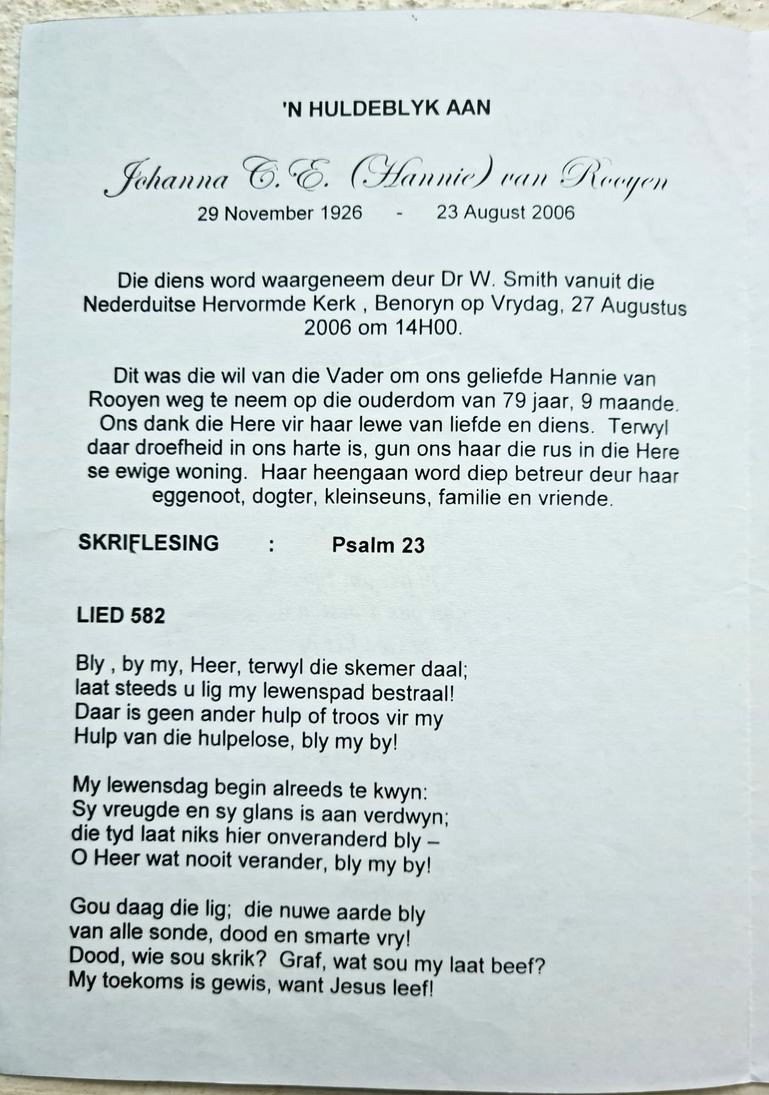 'N HULDEBLYK AAN
Johanna C.E. (Hannie) van Rooyen
29 November 1926 - 23 August 2006
Die diens word waargeneem deur Dr W. Smith vanuit die
Nederduitse Hervormde Kerk , Benoryn op Vrydag, 27 Augustus
2006 om 14H00.
Dit was die wil van die Vader om ons geliefde Hannie van
Rooyen weg te neem op die ouderdom van 79 jaar, 9 maande.
Ons dank die Here vir haar lewe van liefde en diens. Terwyl
daar droefheid in ons harte is, gun ons haar die rus in die Here
se ewige woning. Haar heengaan word diep betreur deur haar
eggenoot, dogter, kleinseuns, familie en vriende.
SKRIFLESING : Psalm 23
LIED 582
Bly , by my, Heer, terwyl die skemer daal;
laat steeds u lig my lewenspad bestraal!
Daar is geen ander hulp of troos vir my
Hulp van die hulpelose, bly my by!
My lewensdag begin alreeds te kwyn:
Sy vreugde en sy glans is aan verdwyn;
die tyd laat niks hier onveranderd bly –
O Heer wat nooit verander, bly my by!
Gou daag die lig; die nuwe aarde bly
van alle sonde, dood en smarte vry!
Dood, wie sou skrik? Graf, wat sou my laat beef?
My toekoms is gewis, want Jesus leef!